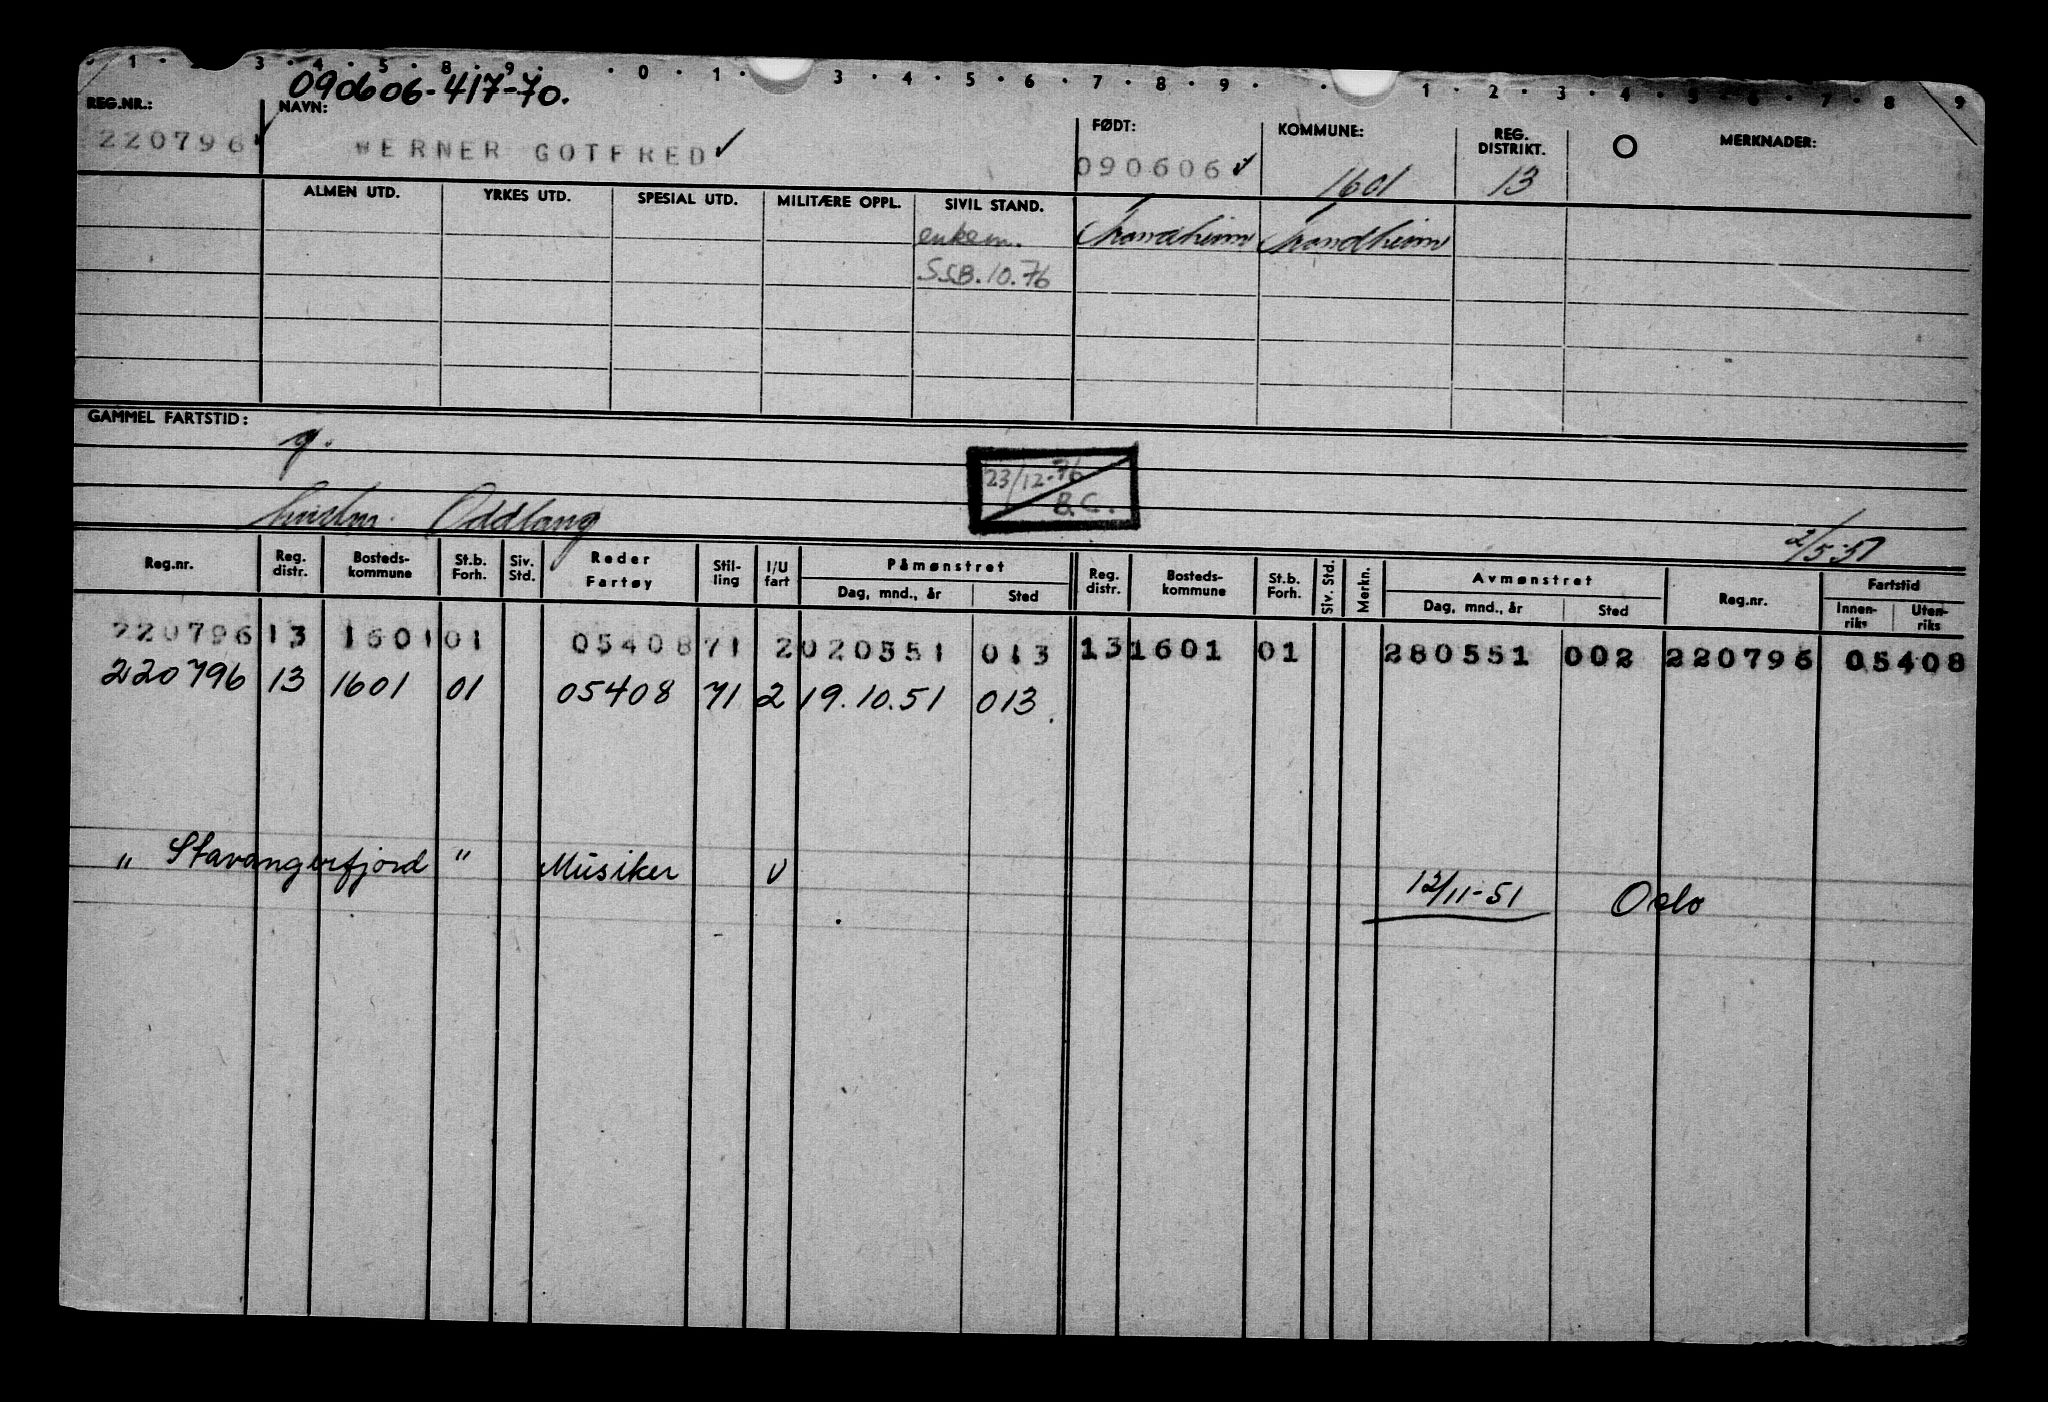 1 · 2 · 3 · 4 · 5 · 8 · 9 · · 0 · 1 · 3 · 4 · 5 · 6 · 7 · 8 · 9 · · 1 · 2 · 3 · 4 · 5 · 6 · 7 · 8 9
090606-417-70.
REG.NR.: NAVN: FØDT: KOMMUNE: REG. DISTRIKT. MERKNADER:
220796 ✓ WERNER GOTFRED ✓ 090606 ✓ 1601 13
ALMEN UTD. YRKES UTD. SPESIAL UTD. MILITÆRE OPPL. SIVIL STAND.
enkem. Trondheim Trondheim
S.S.B. 10.76
GAMMEL FARTSTID:
g.
23/12-76
B.C.
Oddlaug
2/5-51
Reg.nr. Reg. distr. Bosteds-kommune St.b. Forh. Siv. Std. Reder Fartøy Stil-ling I/U fart Påmønstret Reg. distr. Bosteds-kommune St.b. Forh. Siv. Std. Merkn. Avmønstret Reg.nr. Fartstid
Dag, mnd., år Sted Dag, mnd., år Sted Innen-riks Uten-riks
220796 13 1601 01 05408 71 2 020551 013 13 1601 01 280551 002 220796 05408
220796 13 1601 01 05408 71 2 19.10.51 013
" Stavangerfjord " Musiker U 12/11-51 Oslo